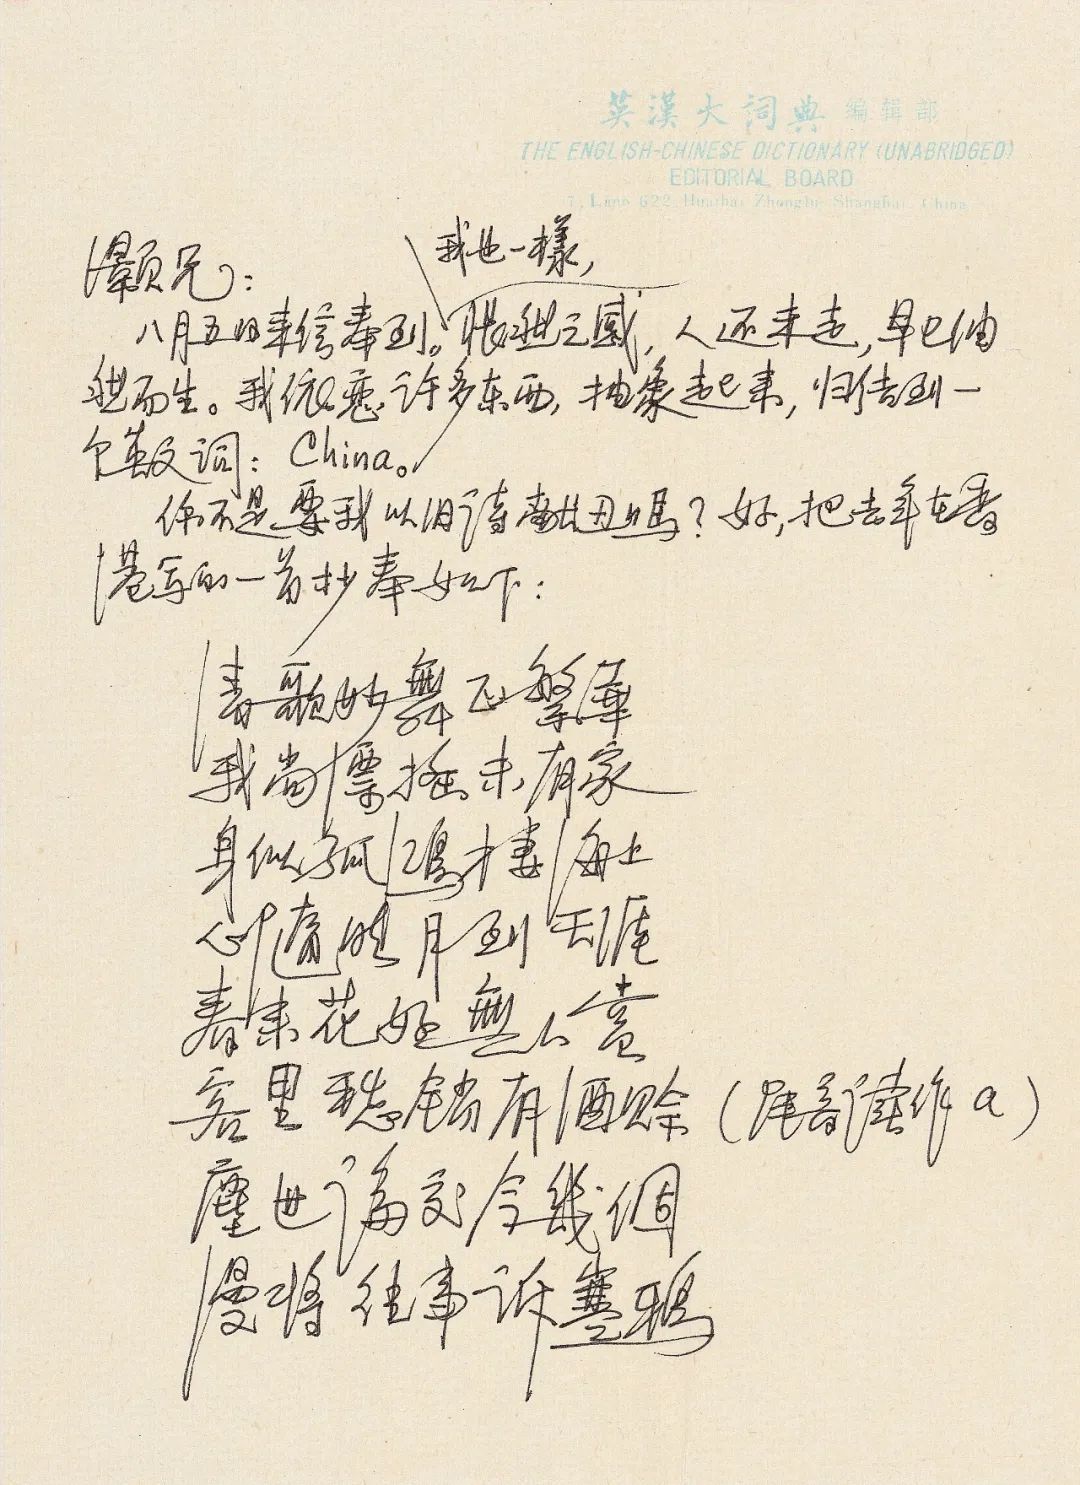 英漢大词典 编辑部
THE ENGLISH-CHINESE DICTIONARY (UNABRIDGED)
EDITORIAL BOARD
7, Lane 622, Huaihai Zhonglu Shanghai, China
灏兄：
我也一樣，
八月五日来信奉到。悵然之感，人还未走，早已油
然而生。我依恋许多东西，抽象起来，归结到一
个英文词：China。
你不是要我以旧诗献丑嗎？好，把去年在香
港写的一首抄奉如下：
清歌妙舞正繁華
我尚漂摇未有家
身似孤鴻棲海上
心隨明月到天涯
春来花好無人賞
客里愁銷有酒賒（尾音读作a）
塵世論交今幾個
漫将往事诉寒鴉